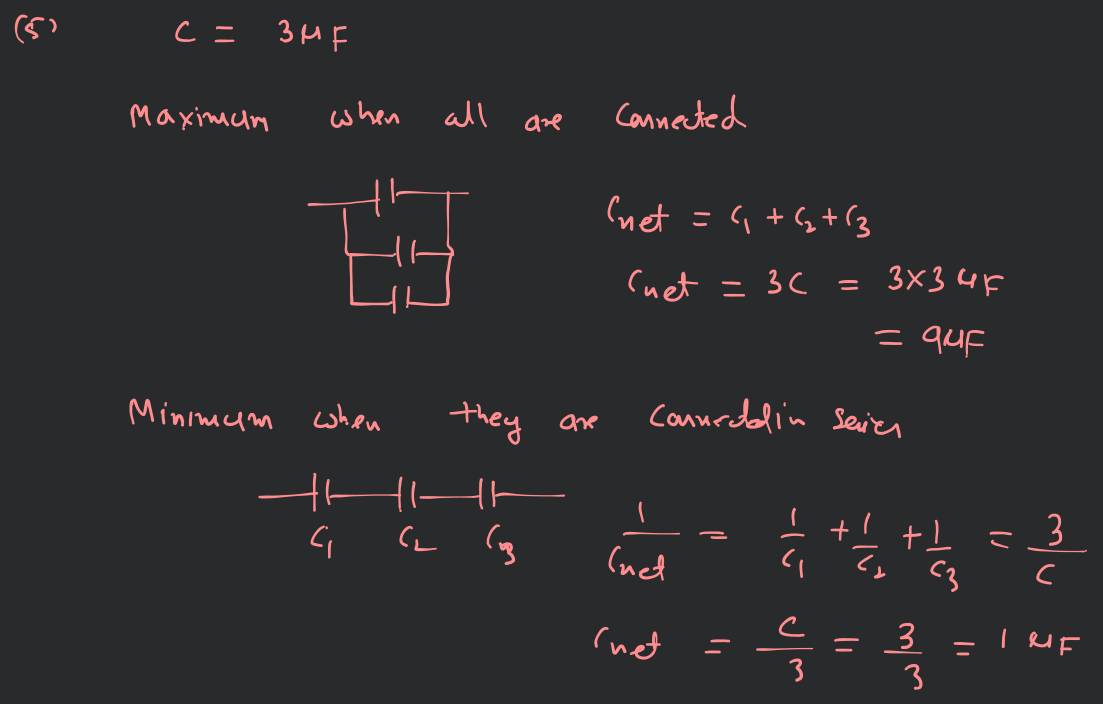 (5) C = 3μF
Maximum when all are Connected
Cnet = C₁ + C₂ + C₃
Cnet = 3C = 3×3 μF
= 9μF
Minimum when they are in series
C₁ C₂ C₃
1/Cnet = 1/C₁ + 1/C₂ + 1/C₃ = 3/C
Cnet = C/3 = 3/3 = 1 μF